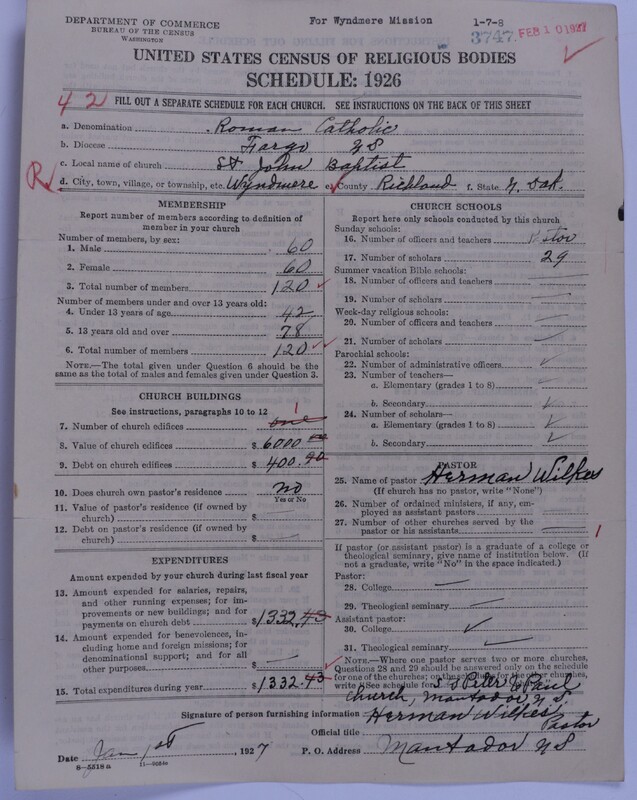 DEPARTMENT OF COMMERCE
BUREAU OF THE CENSUS
WASHINGTON
For Wyndmere Mission
1-7-8
3747
FEB 10 1927
UNITED STATES CENSUS OF RELIGIOUS BODIES
SCHEDULE: 1926
42
FILL OUT A SEPARATE SCHEDULE FOR EACH CHURCH. SEE INSTRUCTIONS ON THE BACK OF THIS SHEET
a. Denomination Roman Catholic
b. Diocese Fargo
c. Local name of church St John Baptist
R
d. City, town, village, or township, etc. Wyndmere e. County Richland f. State N. Dak.
MEMBERSHIP
Report number of members according to definition of
member in your church
Number of members, by sex:
1. Male 60
2. Female 60
3. Total number of members 120
Number of members under and over 13 years old:
4. Under 13 years of age 42
5. 13 years old and over 78
6. Total number of members 120
NOTE.—The total given under Question 6 should be the
same as the total of males and females given under Question 3.
CHURCH BUILDINGS
See instructions, paragraphs 10 to 12
7. Number of church edifices one 1
8. Value of church edifices $ 6000
9. Debt on church edifices $ 400
10. Does church own pastor's residence no
Yes or No
11. Value of pastor's residence (if owned by
church) $
12. Debt on pastor's residence (if owned by
church) $
EXPENDITURES
Amount expended by your church during last fiscal year
13. Amount expended for salaries, repairs,
and other running expenses; for im-
provements or new buildings; and for
payments on church debt $ 1332.43
14. Amount expended for benevolences, in-
cluding home and foreign missions; for
denominational support; and for all
other purposes $
15. Total expenditures during year $ 1332.43
CHURCH SCHOOLS
Report here only schools conducted by this church
Sunday schools:
16. Number of officers and teachers Pastor
17. Number of scholars 29
Summer vacation Bible schools:
18. Number of officers and teachers
19. Number of scholars
Week-day religious schools:
20. Number of officers and teachers
21. Number of scholars
Parochial schools:
22. Number of administrative officers
23. Number of teachers—
a. Elementary (grades 1 to 8)
b. Secondary
24. Number of scholars—
a. Elementary (grades 1 to 8)
b. Secondary
PASTOR
25. Name of pastor Herman Wilkes
(If church has no pastor, write "None")
26. Number of ordained ministers, if any, em-
ployed as assistant pastors
27. Number of other churches served by the
pastor or his assistants 1
If pastor (or assistant pastor) is a graduate of a college or
theological seminary, give name of institution below. (If
not a graduate, write "No" in the space indicated.)
Pastor:
28. College
29. Theological seminary
Assistant pastor:
30. College
31. Theological seminary
NOTE.—Where one pastor serves two or more churches,
Questions 28 and 29 should be answered only on the schedule
for one of the churches; on the schedules for the other churches,
write "See schedule for SS Peter & Paul
Church, Mantador
Signature of person furnishing information Herman Wilkes
Official title Pastor
Date Jan 1st 1927
P. O. Address Mantador
8—5518a